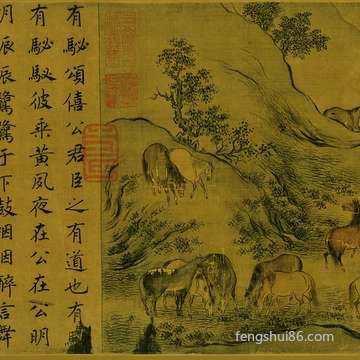 有駜頌僖公君臣之有道也有駜
有駜駜彼乘黃夙夜在公在公明
明振振鷺鷺于下鼓咽咽醉言舞
fengshui86.com